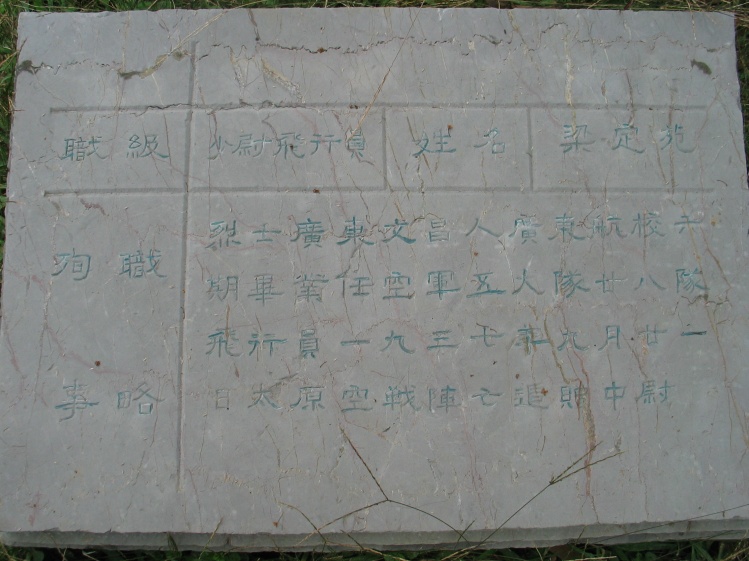 職級 少尉飛行員 姓名 梁定苑
殉職
事略
烈士廣東文昌人廣東航校六
期畢業任空軍五大隊廿八隊
飛行員一九三七年九月廿一
日太原空戦陣亡追贈中尉